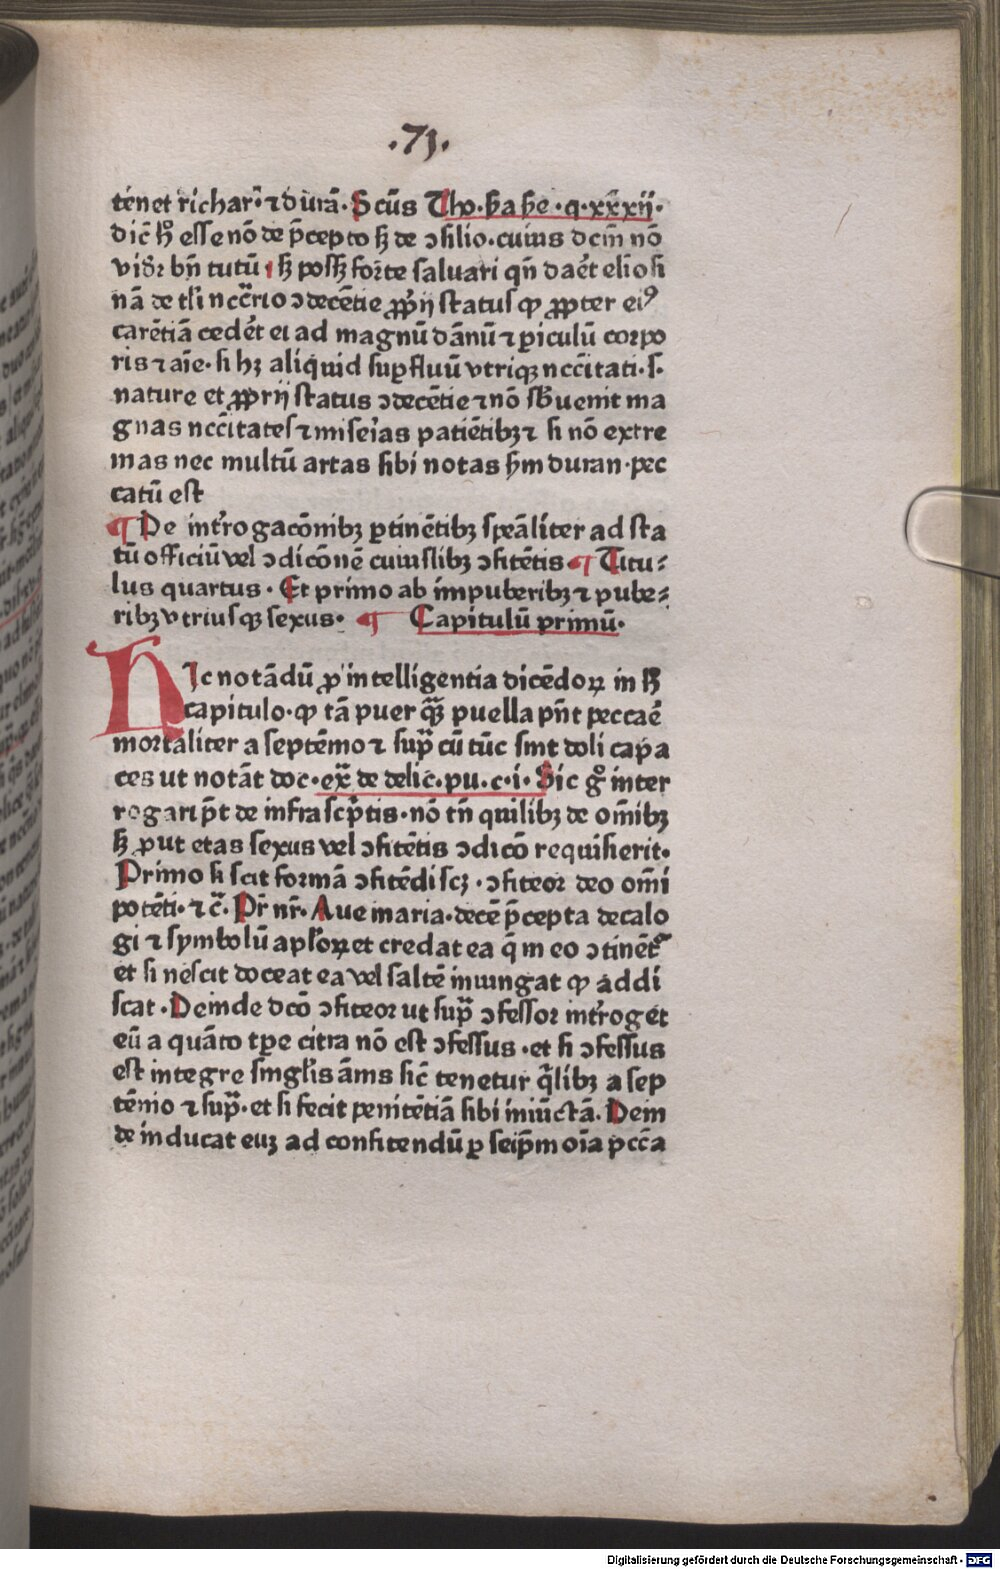 .71.
tenet richar᷒ ⁊ durā. Scūs Tho. ẜa ẜe. q. xxxij.
dic̄ ħ esse nō de p̄cepto sꝫ de ↄsilio. cuius dcm̄ nō
vider̄ bn̄ tutū sꝫ possꝫ forte saluari qn̄ daēt elīosi
nā de tl̄i nccr̄io ↄdecētie ꝓprij status qꝫ ꝓpter eiꝰ
carētiā cedēt ei ad magnū dānū ⁊ ꝑiculū corpo
ris ⁊ aīe. si hꝫ aliquid suꝑfluū vtriqꝫ nccītati. s.
nature et ꝓprij status ↄdecētie ⁊ nō sb̄uenit ma
gnas nccītates ⁊ miserīas patiētibꝫ ⁊ si nō extre
mas nec multū artas sibi notas ẜm duran. pec
catū est
¶ De interrogacōnibꝫ ꝑtinētibꝫ speāliter ad sta
tū officiū vel ↄdicōnē cuiuslibꝫ ↄfitētis ¶ Titu⸗
lus quartus. Et primo ab impuberibꝫ ⁊ pube⸗
ribꝫ vtriusqꝫ sexus. ¶ Capitulū primū.
HIc notādū ꝓ intelligentia dicēdoꝝ in ħ
capitulo. ꝙ tā puer qꝫ̄ puella pn̄t peccāe
mortaliter a septēmo ⁊ sup̄ cū tūc sint doli capa
ces ut notāt doc. ex̄ de delic̄. pu. c. i. Sic gͦ inter
rogari pn̄t de infrascp̄tis. nō tn̄ quilibꝫ de om̄ibꝫ
sꝫ ꝓut etas sexus vel ↄfitētis ↄdicō requisierit.
Primo si scit formā ↄfitēdi scꝫ. ↄfiteor deo om̄i
potēti. ⁊c̄. Pr̄ nr̄. Aue maria. decē p̄cepta decalo
gi ⁊ symbolū apl̄oꝝ et credat ea q̄ in eo ↄtinēt᷒
et si nescit doceat ea vel saltē iniungat ꝙ addi
scat. Deinde dcō ↄfiteor ut sup̄ ↄfessor int̄roget
eū a quāto tꝑe citra nō est ↄfessus. et si ↄfessus
est integre singl̄is ānis sic̄ tenetur q̄libꝫ a sep
tēnio ⁊ sup̄. et si fecit penitētiā sibi iniūctā. Dein
de inducat euꝫ ad confitendū ꝑ seip̄m oīa pccā
Digitalisierung gefördert durch die Deutsche Forschungsgemeinschaft - DFG